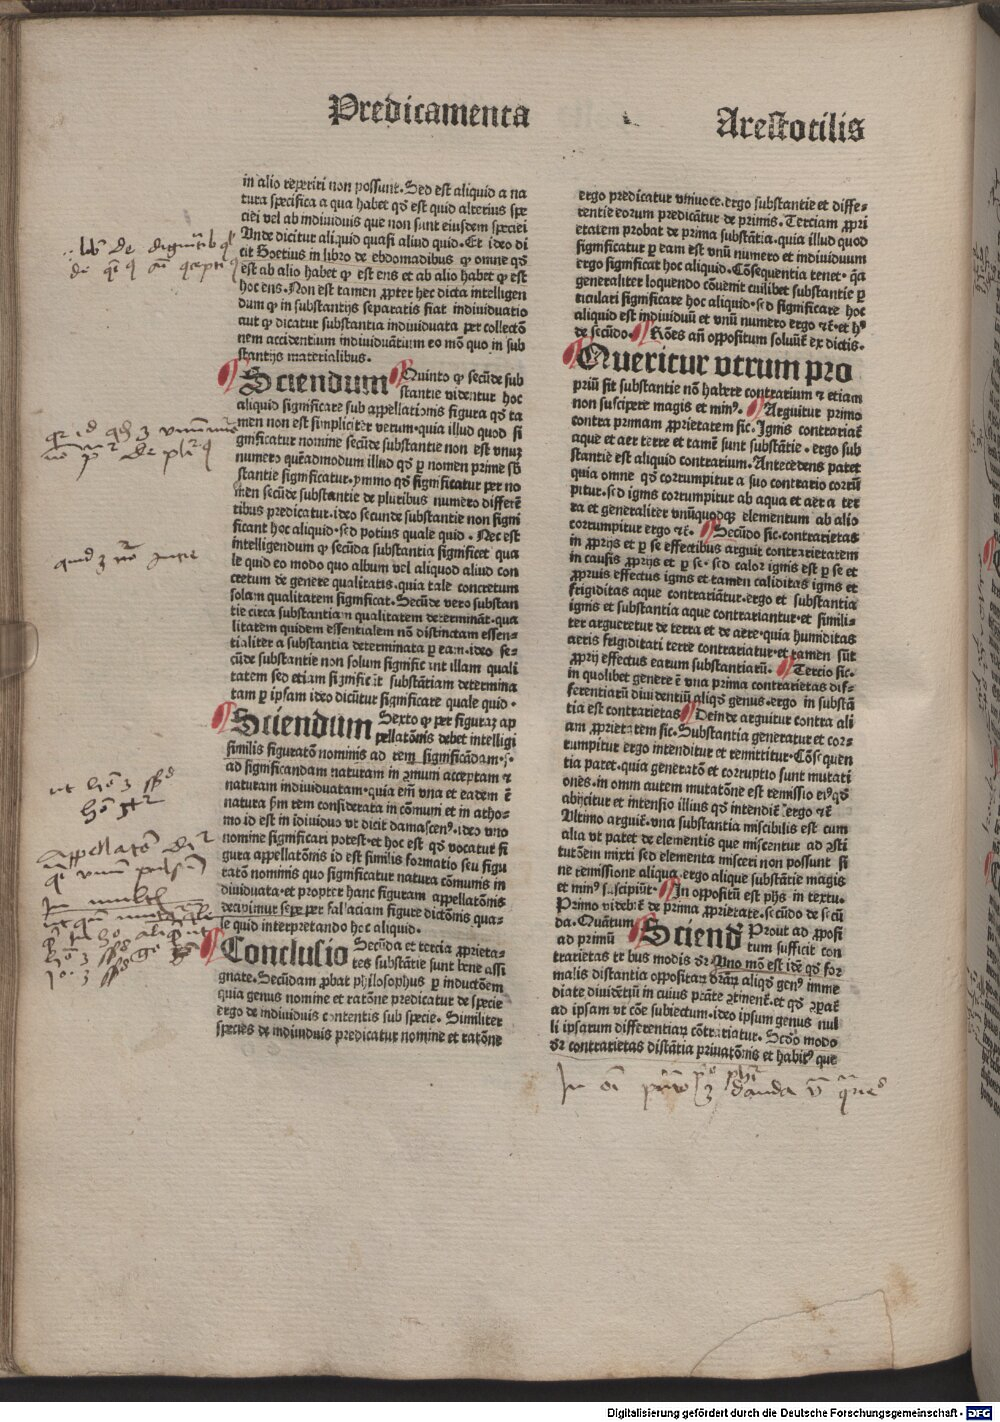 Predicamenta
Arestotilis
in alio reperiri non possunt. Sed est aliquid a na
tura specifica a qua habet qđ est quid alterius spe
ciei vel ab indiuiduis que non sunt eiusdem speciei
Unde dicitur aliquid quasi aliud quid. Et ideo di
cit Boetius in libro de ebdomadibus ꝙ omne qđ
est ab alio habet ꝙ est ens et ab alio habet ꝙ est
hoc ens. Non est tamen ꝓpter hec dicta intelligen
dum ꝙ in substantijs separatis fiat indiuiduatio
aut ꝙ dicatur substantia indiuiduata per collectō
nem accidentium indiuiduātium eo mō quo in sub
stantijs materialibus.
Sciendum Quinto ꝙ secūde sub
stantie videntur hoc
aliquid significare sub appellationis figura qđ ta
men non est simpliciter verum. quia illud quod si
gnificatur nomine secūde substantie non est vnuꝫ
numero quēadmodum illud qđ ꝑ nomen prime sb
stantie significatur. ymmo qđ significatur per no
men secūde substantie de pluribus numero differē
tibus predicatur. ideo secunde substantie non signi
ficant hoc aliquid. sed potius quale quid. Nec est
intelligendum ꝙ secūda substantia significet qua
le quid eo modo quo album vel aliquod aliud con
cretum de genere qualitatis. quia tale concretum
solam qualitatem significat. Secūde vero substan
tie circa substantiam qualitatem determināt. qua
litatem quidem essentialem nō distinctam essen-
tialiter a substantia determinata ꝑ eam. ideo se-
cūde substantie non solum significant illam quali
tatem sed etiam significāt substātiam determina
tam ꝑ ipsam ideo dicūtur significare quale quid.
Sciendum Sexto ꝙ per figuraꝫ ap
pellatōnis debet intelligi
similis figuratō nominis ad rem significādam. s.
ad significandam naturam in ꝯmuni acceptam ⁊
naturam indiuiduatam. quia em̄ vna et eadem ē
natura ẜm rem considerata in cōmuni et in atho-
mo id est in idiuiduo vt dicit damascenꝰ. ideo vno
nomine significari potest. et hoc est qđ vocatur fi
gura appellatōnis id est similis formatio seu figu
ratō nominis quo significatur natura cōmunis in
diuiduata. et propter hanc figuram appellatōnis
decipimur sepe per fallaciam figure dictōnis qua-
le quid interpretando hoc aliquid.
Conclusio Secūda et tercia ꝓprieta-
tes substātie sunt bene assi
gnate. Secūdam ꝓbat philosophus ꝑ inductōem
quia genus nomine et ratōne predicatur de specie
ergo de indiuiduis contentis sub specie. Similiter
species de indiuiduis predicatur nomine et ratōne
ergo predicatur vniuoce. ergo substantie et diffe-
rentie eorum predicātur de primis. Terciam ꝓpri
etatem probat de prima substātia. quia illud quod
significatur ꝑ eam est vnū numero et indiuiduum
ergo significat hoc aliquid. Cōsequentia tenet. qa
generaliter loquendo cōuenit cuilibet substantie ꝑ
ticulari significare hoc aliquid. sed significare hoc
aliquid est indiuiduū et vnū numero ergo ⁊c̄. et hꝰ
de secūdo. Rōnes an̄ oppositum soluūt̄ ex dictis.
Queritur vtrum pro
priū sit substantie nō habere contrarium ⁊ etiam
non suscipere magis et minꝰ. Arguitur primo
contra primam ꝓprietatem sic. Ignis contrariat̄
aque et aer terre et tamē sunt substātie. ergo sub
stantie est aliquid contrarium. Antecedens patet
quia omne qđ corrumpitur a suo contrario corrū
pitur. sed ignis corrumpitur ab aqua et aer a ter
ra et generaliter vnūquodqꝫ elementum ab alio
corrumpitur ergo ⁊c̄. Secūdo sic. contrarietas
in ꝓprijs et ꝑ se effectibus arguit contrarietatem
in causis ꝓprijs et ꝑ se. sed calor ignis est ꝑ se et
ꝓprius effectus ignis et tamen caliditas ignis et
frigiditas aque contrariātur. ergo et substantia
ignis et substantia aque contrariantur. et simili-
ter argueretur de terra et de aere. quia humiditas
aeris frigiditati terre contrariatur. et tamen sūt
ꝓprij effectus earum substantiarū. Tercio sic.
in quolibet genere ē vna prima contrarietas dif-
ferentiarū diuidentiū aliqđ genus. ergo in substā
tia est contrarietas Deinde arguitur contra ali
am ꝓprietatem sic. Substantia generatur et cor-
rumpitur ergo intenditur et remittitur. Cōsequen
tia patet. quia generatō et corruptio sunt mutati
ones. in omni autem mutatōne est remissio eiꝰ qđ
abijcitur et intensio illius qđ intendit̄ ergo ⁊c̄
Ultimo arguit̄. vna substantia miscibilis est cum
alia vt patet de elementis que miscentur ad ꝯsti
tutōem mixti sed elementa misceri non possunt si
ne remissione aliqua. ergo alique substātie magis
et minꝰ suscipiūt. In oppositū est phs in textu.
Primo videbit̄ de prima ꝓprietate. secūdo de secū
da. Quātum Sciend Prout ad ꝓposi
ad primū tum sufficit con
trarietas tribus modis dr̄ Uno mō est idē qđ for
malis distantia oppositaꝝ dr̄aꝝ aliqđ genꝰ imme
diate diuidentiū in cuius ꝑte ꝯtinent̄. et qđ ꝯꝑat̄
ad ipsam vt cōe subiectum. ideo ipsum genus nul
li ipsarum differentiaꝝ cōtrariatur. Scdō modo
dr̄ contrarietas distātia priuatōnis et habitꝰ que